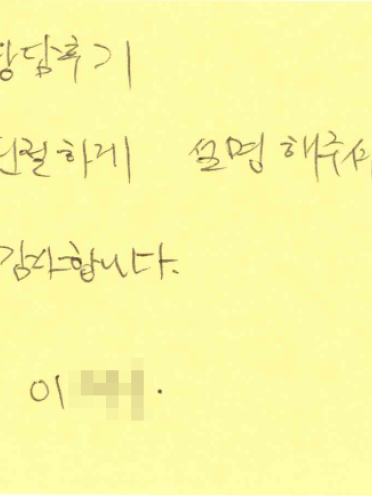 상담후기
친절하게 설명해주셔
감사합니다.
이